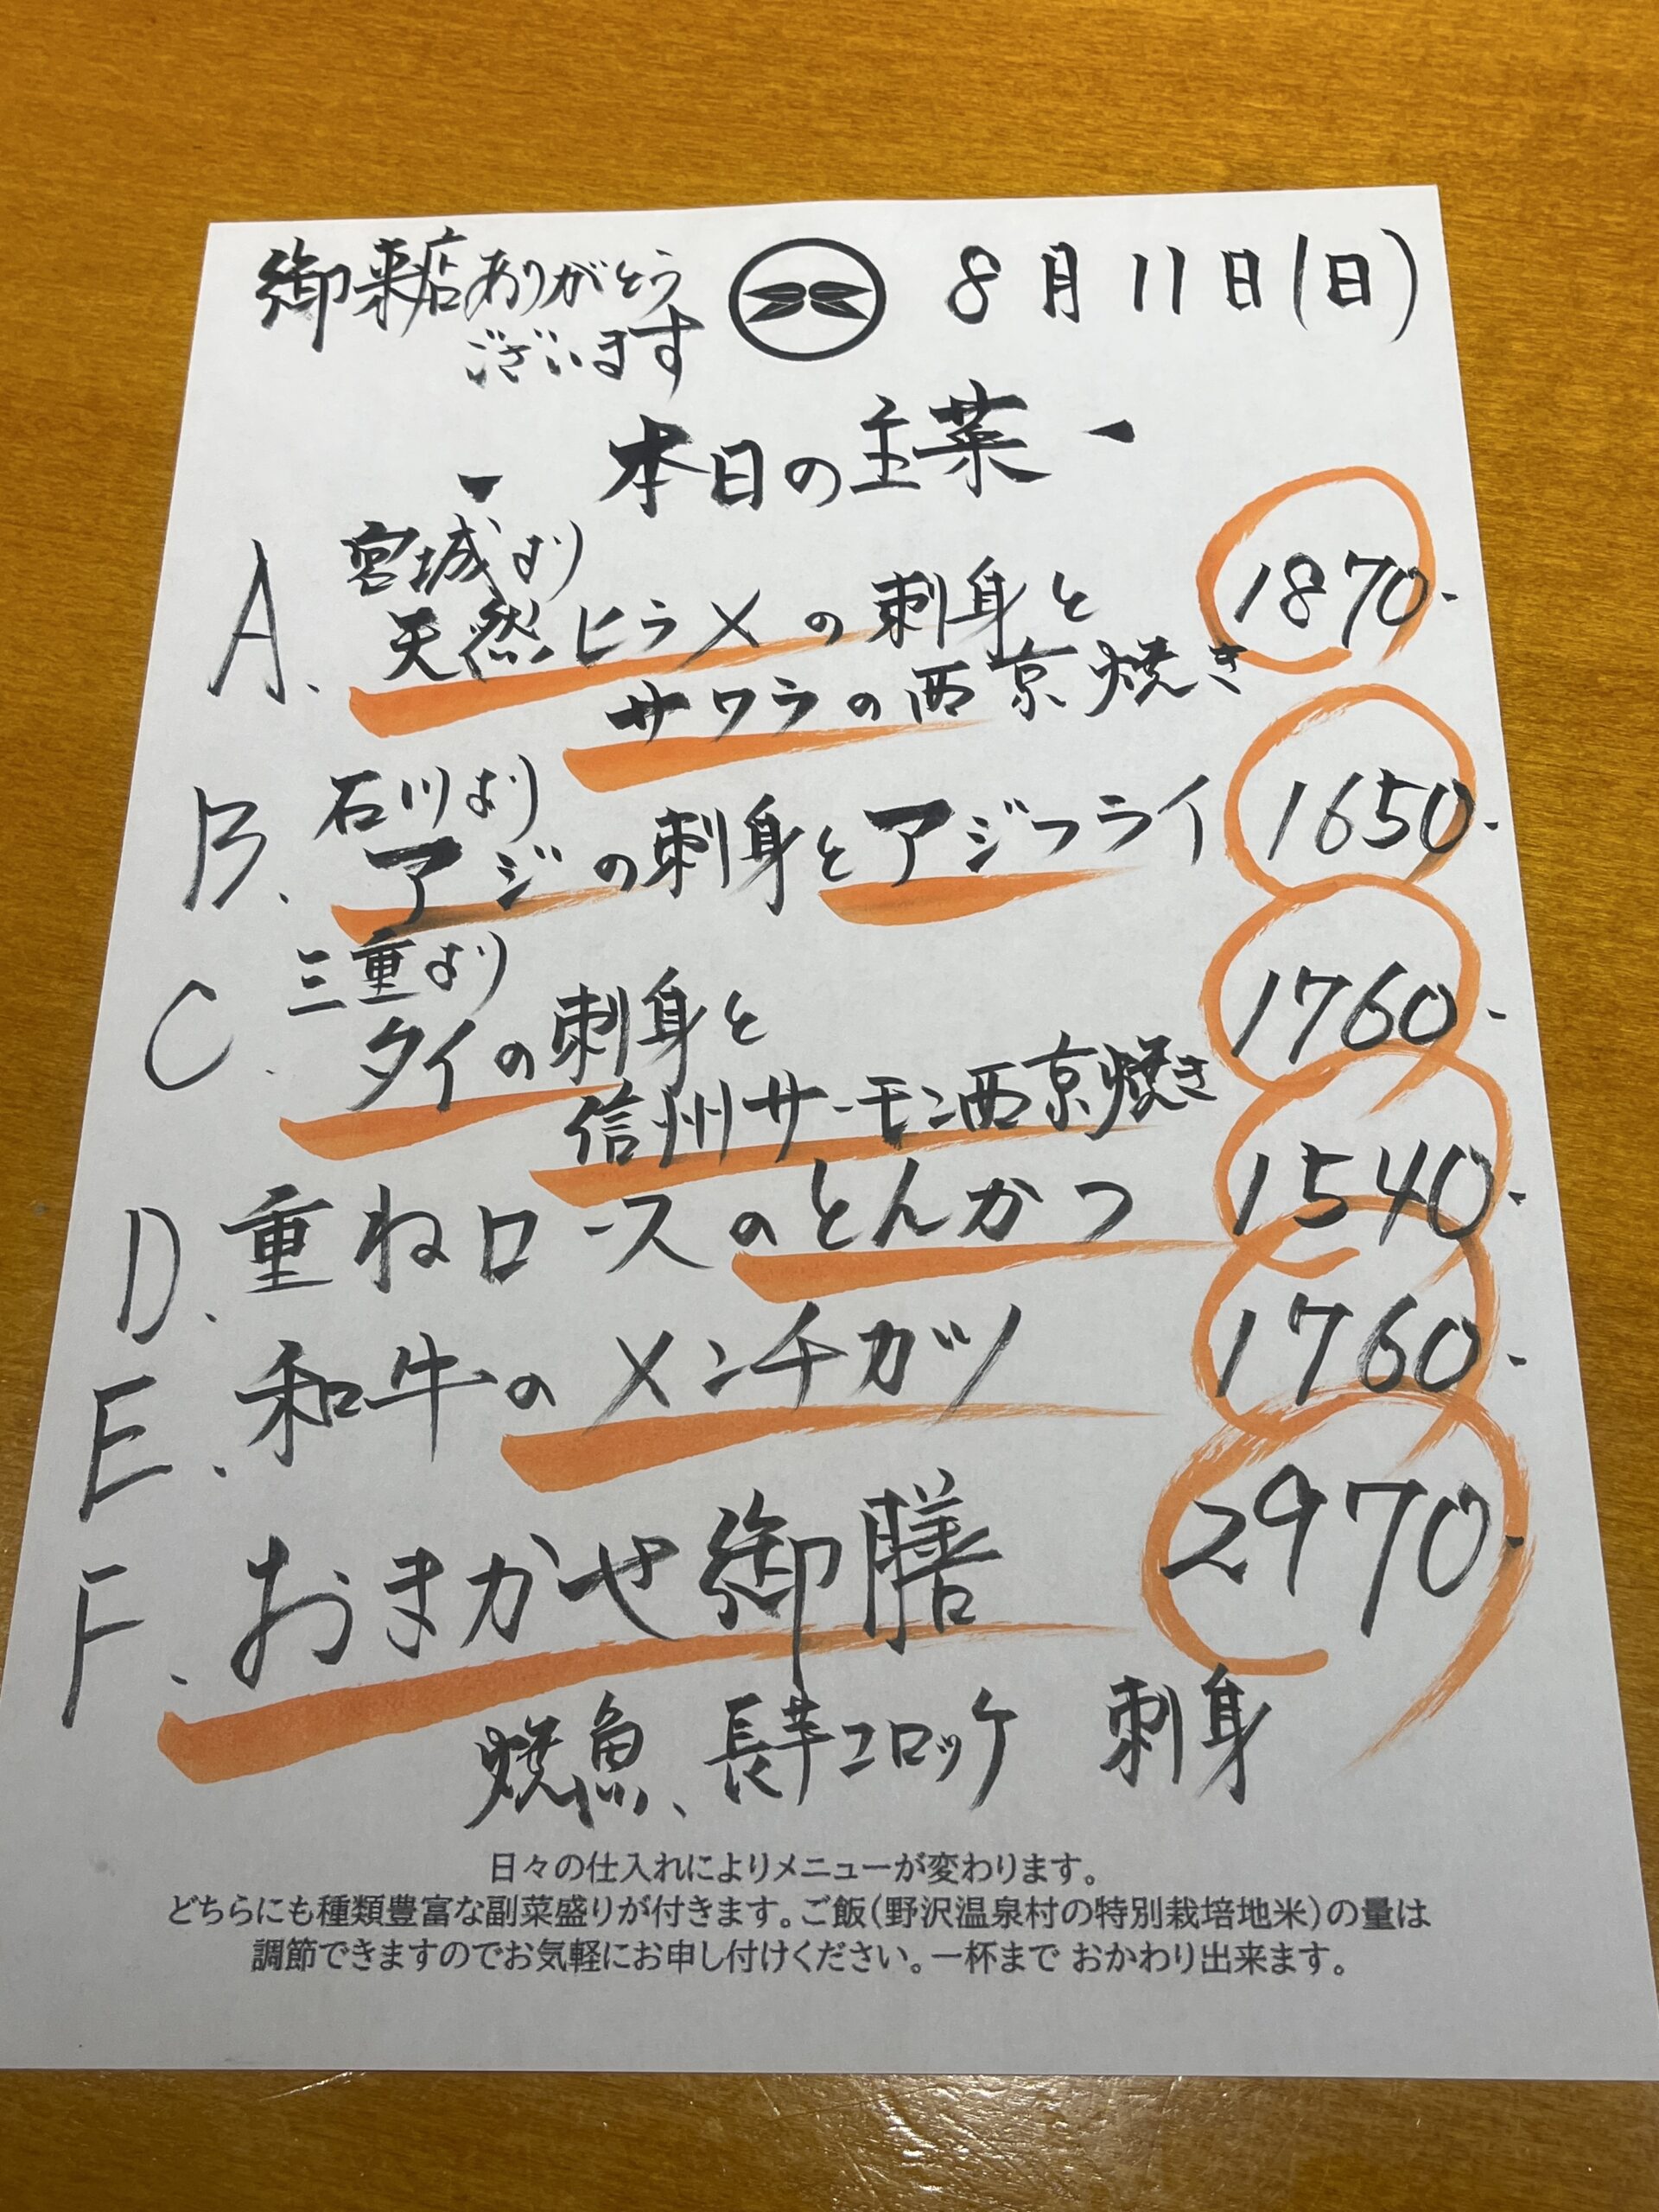 御来店ありがとう
ございます
8月11日(日)
- 本日の主菜 -
A. 宮城より
天然ヒラメの刺身と
サワラの西京焼き
1870.-
B. 石川より
アジの刺身とアジフライ
1650.-
C. 三重より
タイの刺身と
信州サーモン西京焼き
1760.-
D. 重ねロースのとんかつ 1540.-
E. 和牛のメンチガツ 1760.-
F. おまかせ御膳 2970.-
焼魚、長芋コロッケ 刺身
日々の仕入れによりメニューが変わります。
どちらにも種類豊富な副菜盛りが付きます。ご飯(野沢温泉村の特別栽培地米)の量は
調節できますのでお気軽にお申し付けください。一杯まで おかわり出来ます。